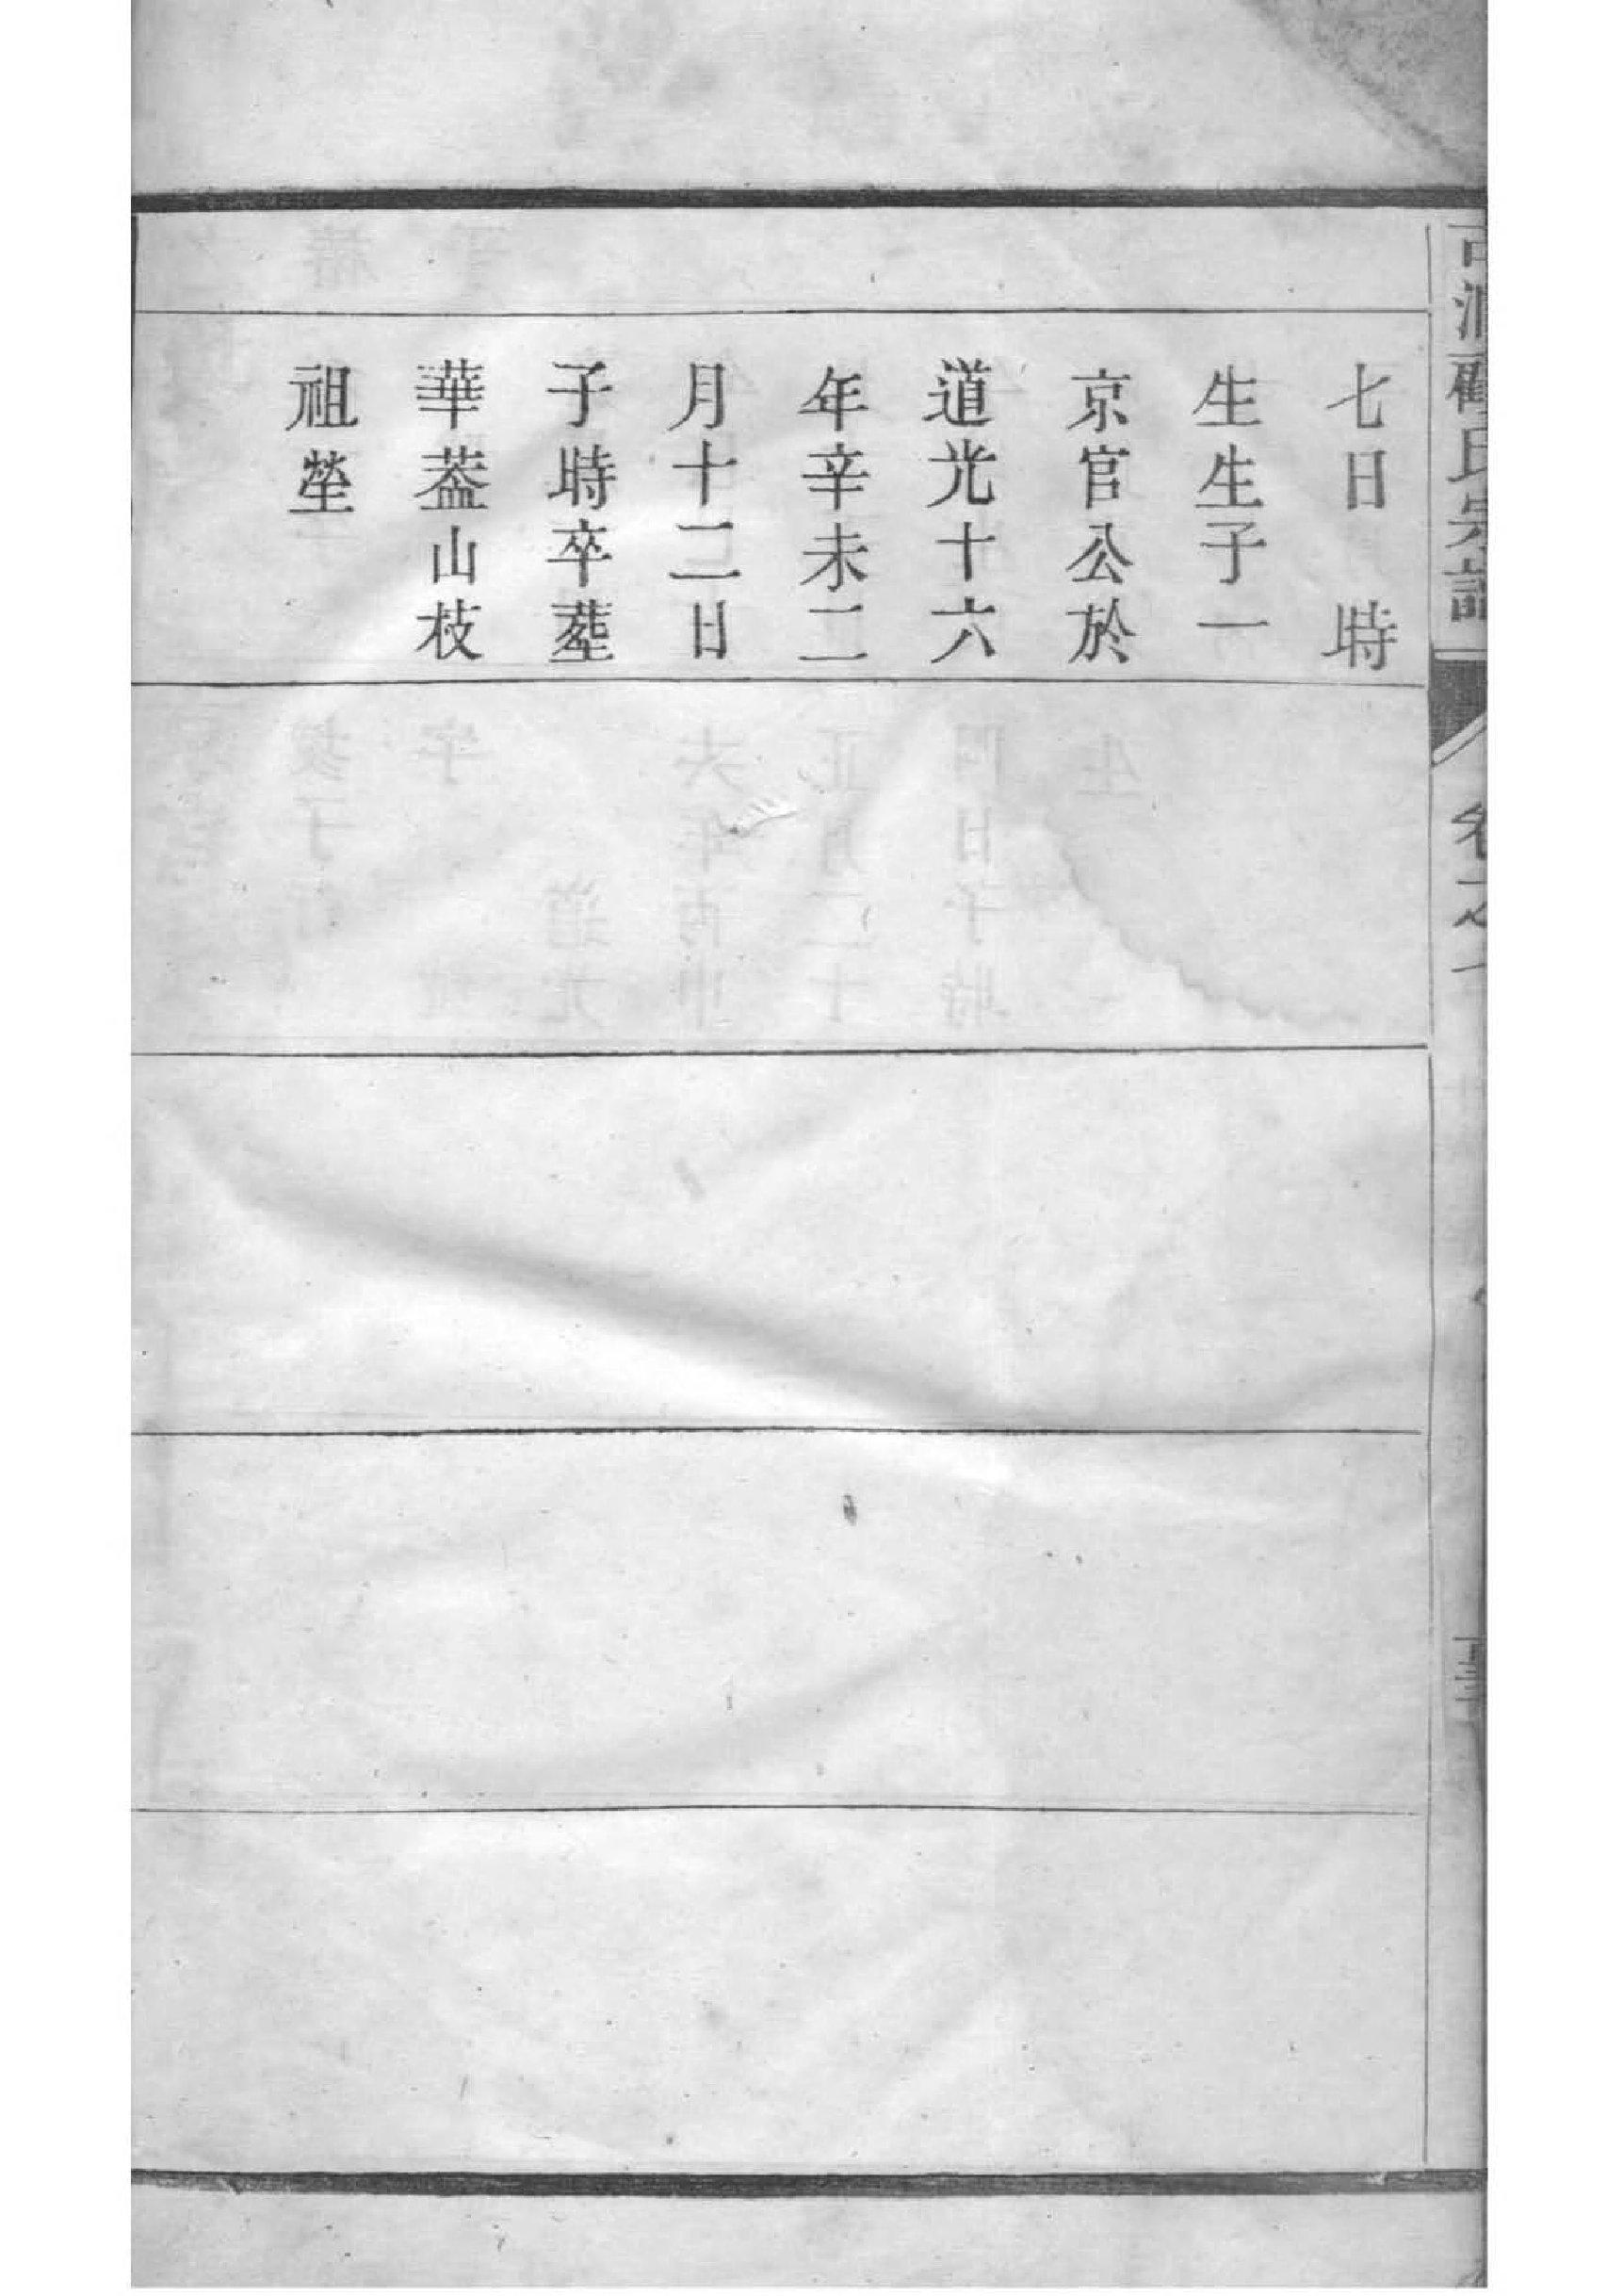 七日　時
生生子一
京官公於
道光十六
年辛未二
月十二日
子時卒葬
華葢山枝
祖塋